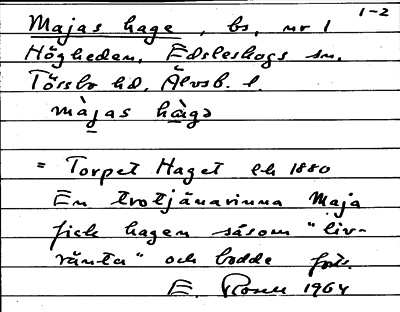 1-2
Majas hage, bs, nr 1
Högheden, Edsleskogs sn.
Tössbo hd, Älvsb. l.
màjas hàgə
= Torpet Haget ek 1880
En trotjänarinna Maja
fick hagen såsom "liv-
ränta" och bodde
E. Rosell 1964